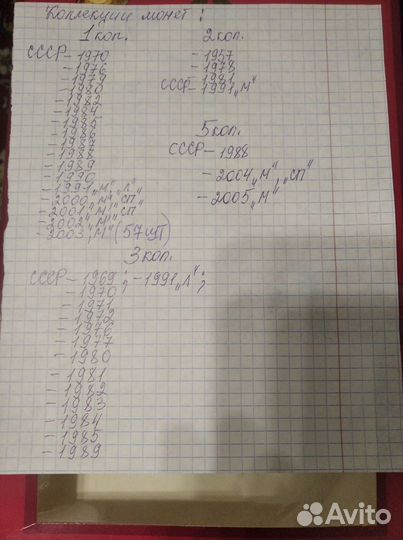 Коллекции монет:
1коп.
СССР-1970
-1976
-1979
-1980
-1982
-1984
-1985
-1986
-1987
-1988
-1989
-1990
-1991„М“,„Л“
-2000„М“,„СП“
-2001„М“,„СП
-2002„М“
-2003„М“ (57шт)
2коп.
-1957
-1978
-1981
СССР-1991„М“
5коп.
СССР-1988
-2004„М“,„СП“
-2005„М“
3коп.
СССР-1969; -1991„Л“;
-1970;
-1971
-1972
-1976
-1977
-1980
-1981
-1982
-1983
-1984
-1985
-1989
Avito